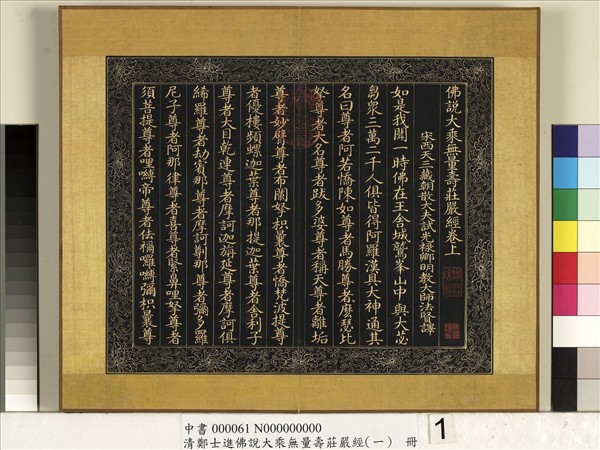 佛說大乘無量壽莊嚴經卷上
宋西天三藏朝散大夫試光祿卿明教大師法賢譯
如是我聞一時佛在王舍城鷲峯山中與大苾
芻眾三萬二千人俱皆得阿羅漢具大神通其
名曰尊者阿若憍陳如尊者馬勝尊者麼瑟比
拏尊者大名尊者跋多婆尊者稱天尊者離垢
尊者妙臂尊者布闌拏枳曩尊者憍梵波提尊
者優樓頻螺迦葉尊者那提迦葉尊者舍利子
尊者大目乾連尊者摩訶迦旃延尊者摩訶俱
絺羅尊者劫賓那尊者摩訶劑那尊者彌多羅
尼子尊者阿那律尊者喜尊者緊鼻哩拏尊者
須菩提尊者哩嚩帝尊者佉禰羅嚩彌枳曩尊
中書 000061 N000000000
清鄭士進佛說大乘無量壽莊嚴經(一) 冊
1